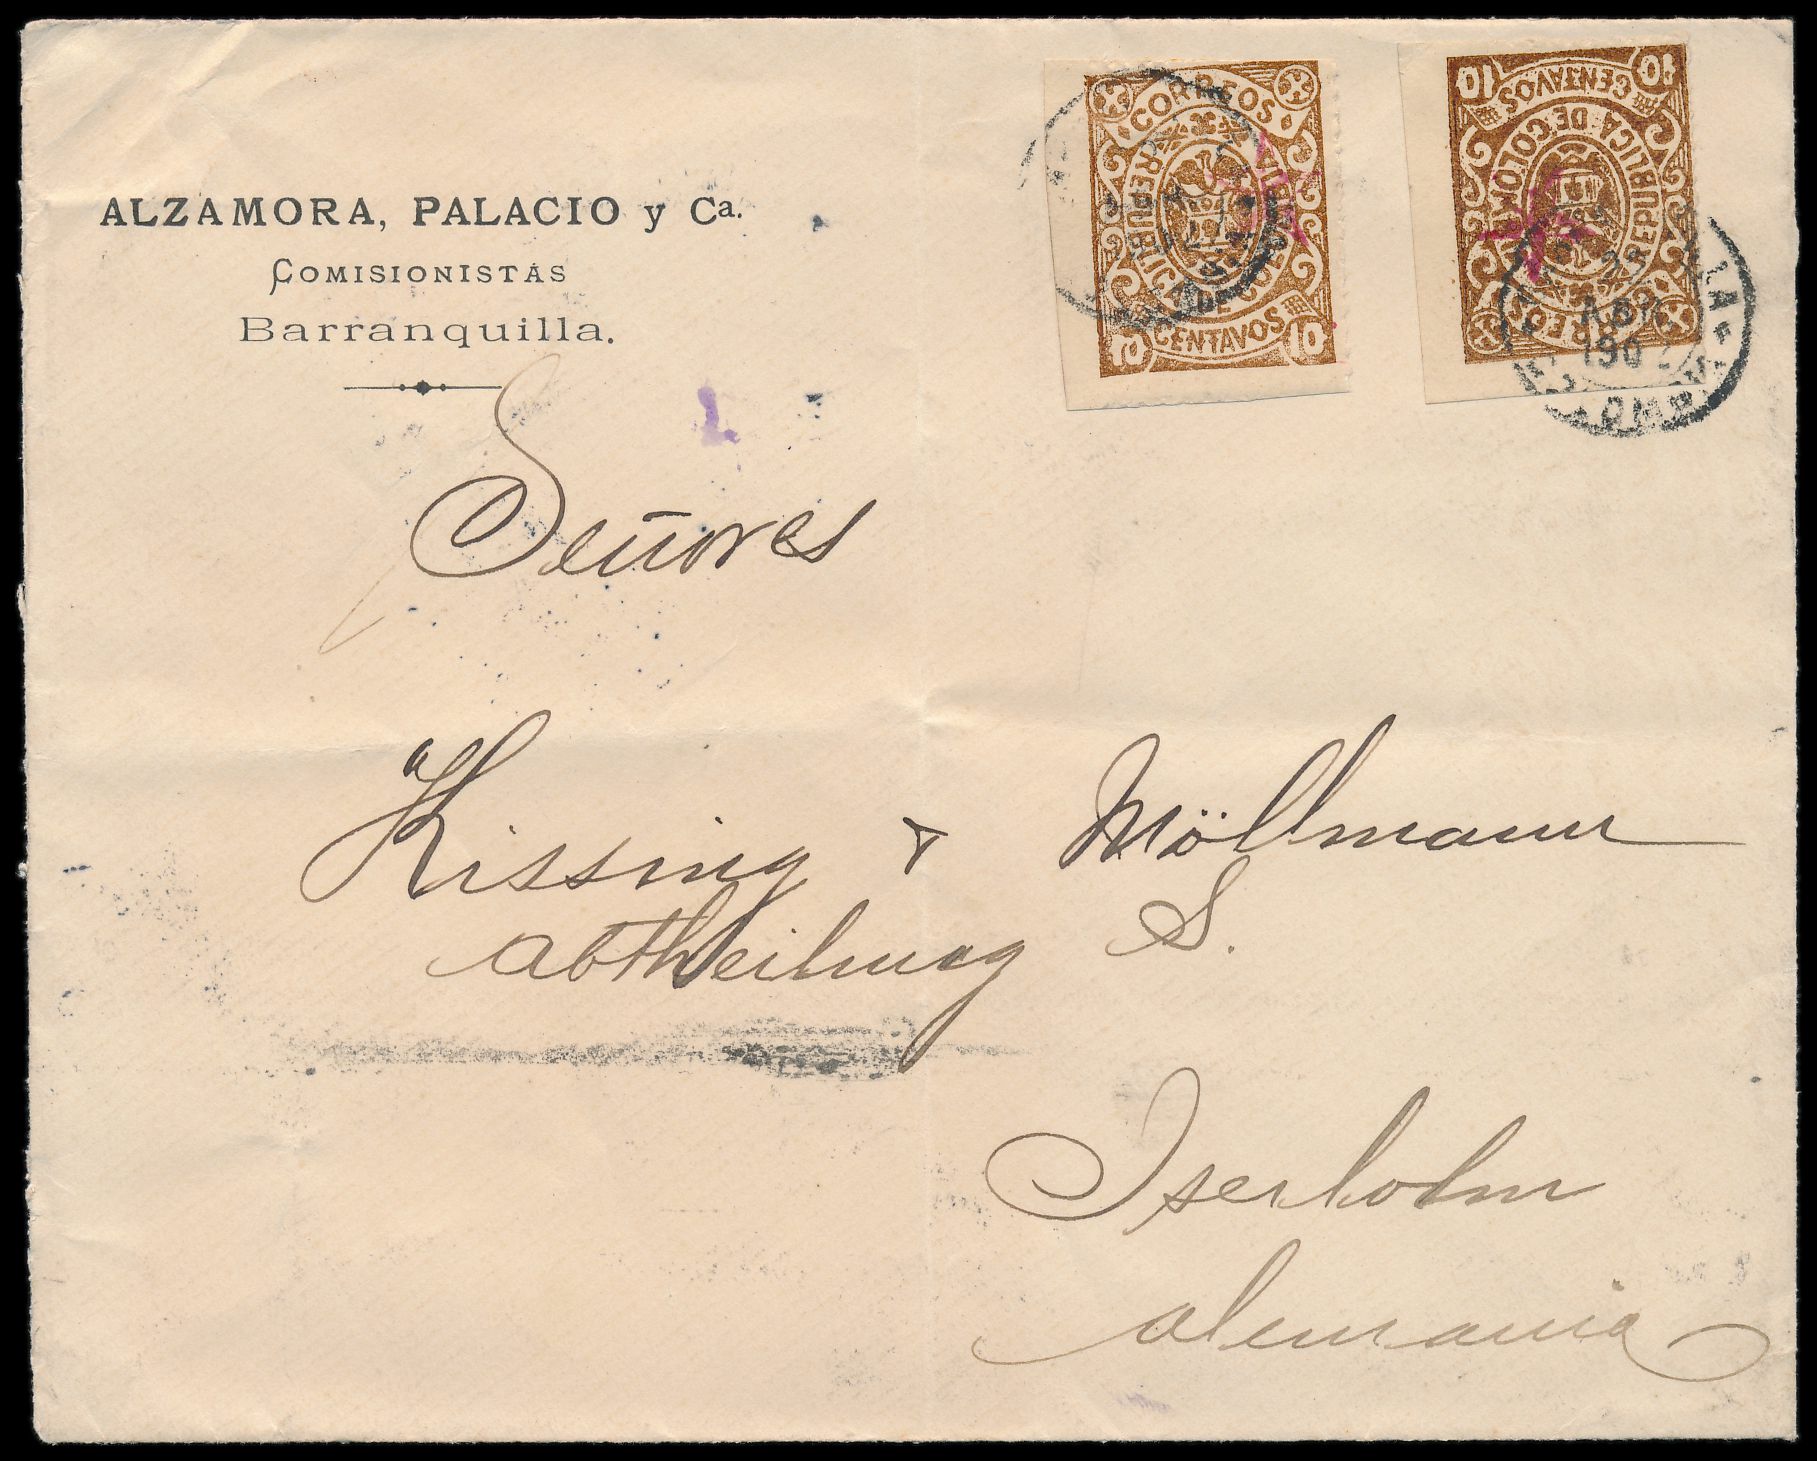 ALZAMORA, PALACIO y Ca.
COMISIONISTAS
Barranquilla.
CORREOS
REPUBLICA DE COLOMBIA
CENTAVOS
10 10
10 10
CENTAVOS
REPUBLICA DE COLOMBIA
CORREOS
ABR
190
Señores
Kissing & Möllmann
Abtheilung S.
Iserlohn
Alemania